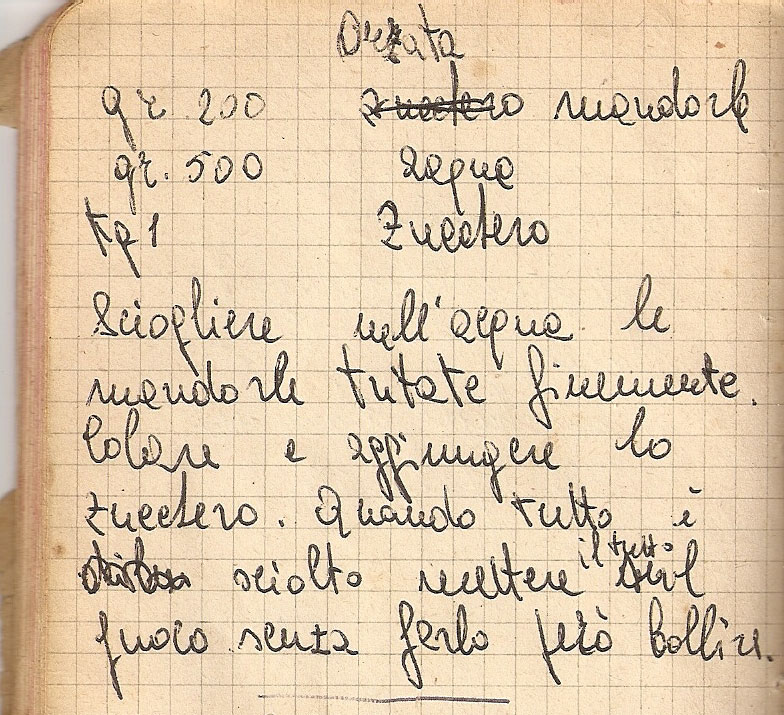 Orzata
gr. 200 zucchero mandorle
gr. 500 acqua
Kg 1 Zucchero
Sciogliere nell'acqua le
mandorle tritate finemente.
Colare e aggiungere lo
zucchero. Quando tutto è
sciolto mettere il tutto sul
fuoco senza farlo però bollire.